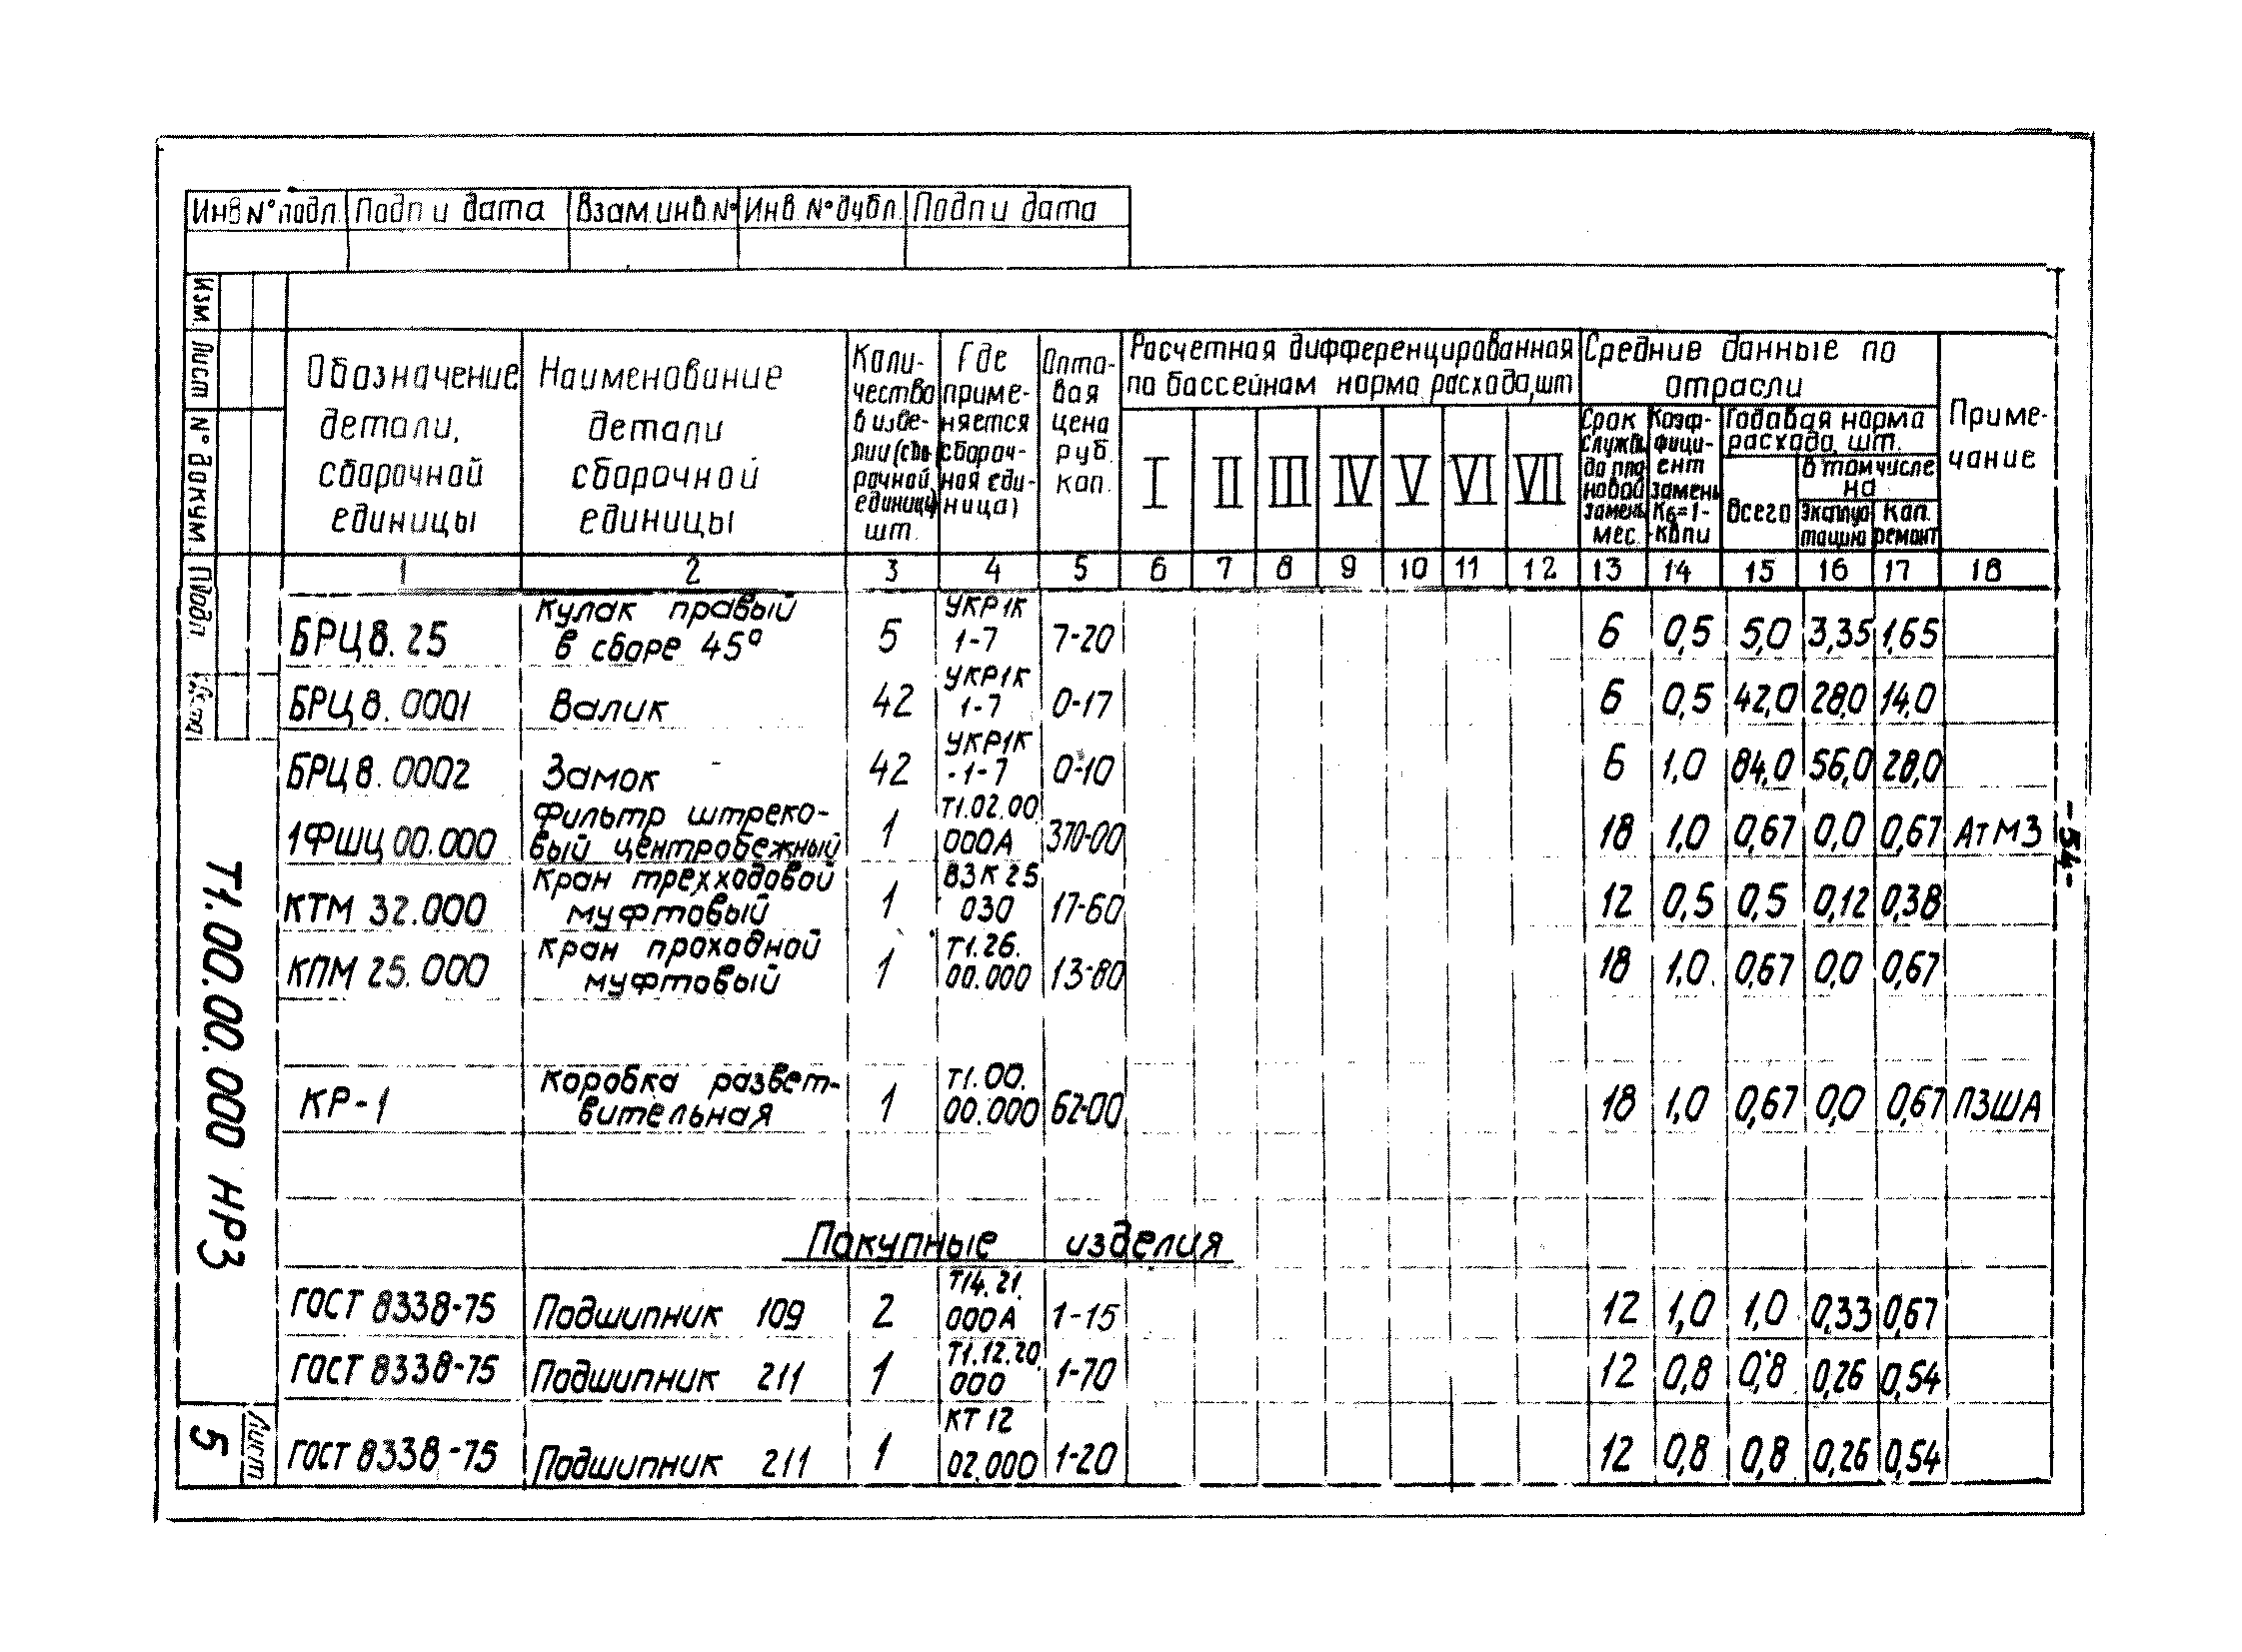 Инв № подл. Подп и дата Взам.инв.№ Инв. № дубл. Подп и дата
Изм. Лист № докум. Подп.
Обозначение детали, сборочной единицы
Наименование детали сборочной единицы
Количество в изделии (сборочной единицы) шт.
Где применяется сборочная единица)
Оптовая цена руб. коп.
Расчетная дифференцированная по бассейнам норма расхода, шт
I II III IV V VI VII
Средние данные по отрасли
Срок службы до плановой замены мес.
Коэффициент замены
Годовая норма расхода, шт.
Всего
в том числе на
эксплуатацию
кап. ремонт
Примечание
1 2 3 4 5 6 7 8 9 10 11 12 13 14 15 16 17 18
БРЦ8.25 Кулак правый в сборе 45° 5 УКР1К 1-7 7-20 6 0,5 5,0 3,35 1,65
БРЦ8.0001 Валик 42 УКР1К 1-7 0-17 6 0,5 42,0 28,0 14,0
БРЦ8.0002 Замок 42 УКР1К -1-7 0-10 6 1,0 84,0 56,0 28,0
1ФШЦ00.000 Фильтр штрековый центробежный 1 Т1.02.00. 000А 370-00 18 1,0 0,67 0,0 0,67 АтМЗ
КТМ 32.000 Кран трехходовой муфтовый 1 ВЗК25 030 17-60 12 0,5 0,5 0,12 0,38
КПМ 25.000 Кран проходной муфтовый 1 Т1.26. 00.000 13-80 18 1,0 0,67 0,0 0,67
КР-1 Коробка разветвительная 1 Т1.00. 00.000 62-00 18 1,0 0,67 0,0 0,67 ПЗША
Покупные изделия
ГОСТ 8338-75 Подшипник 109 2 Т14.21. 000А 1-15 12 1,0 1,0 0,33 0,67
ГОСТ 8338-75 Подшипник 211 1 Т1.12.20. 000 1-70 12 0,8 0,8 0,26 0,54
ГОСТ 8338-75 Подшипник 211 1 КТ12 02.000 1-20 12 0,8 0,8 0,26 0,54
Т1.00.00.000 НРЗ
Лист
5
-54-